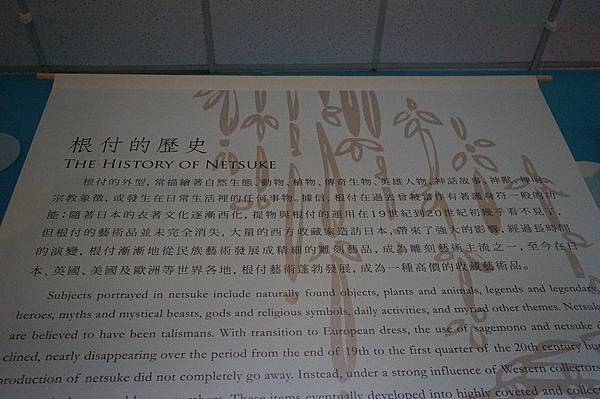 根付的歷史
THE HISTORY OF NETSUKE
根付的外型，常描繪著自然生態、動物、植物、傳奇生物、英雄人物、神話故事、神獸、神祠、
宗教象徵，或發生在日常生活裡的任何事物。據信，根付在過去曾被當作有著護身符一般的功
能；隨著日本的衣著文化逐漸西化，提物與根付的運用在19世紀到20世紀初幾乎看不見了，
但根付的藝術品並未完全消失，大量的西方收藏家造訪日本，帶來了強大的影響，經過長時間
的演變，根付漸漸地從民族藝術發展成精細的雕刻藝品，成為雕刻藝術主流之一，至今在日
本、英國、美國及歐洲等世界各地，根付藝術蓬勃發展，成為一種高價的收藏藝術品。
Subjects portrayed in netsuke include naturally found objects, plants and animals, legends and legendary
heroes, myths and mystical beasts, gods and religious symbols, daily activities, and myriad other themes. Netsuk
are believed to have been talismans. With transition to European dress, the use of sagemono and netsuke d
clined, nearly disappearing over the period from the end of 19th to the first quarter of the 20th century but
production of netsuke did not completely go away. Instead, under a strong influence of Western collectors
These items eventually developed into highly coveted and collec